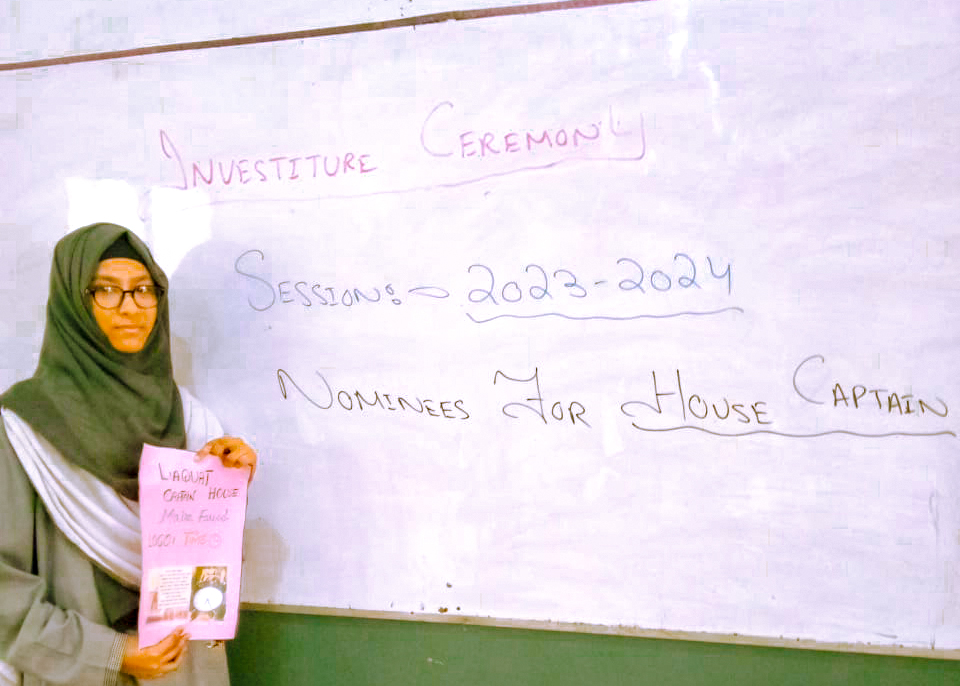 INVESTITURE CEREMONY
SESSION:- 2023-2024
NOMINEES FOR HOUSE CAPTAIN
LIAQUAT
CAPTAIN HOUSE
LOGO: